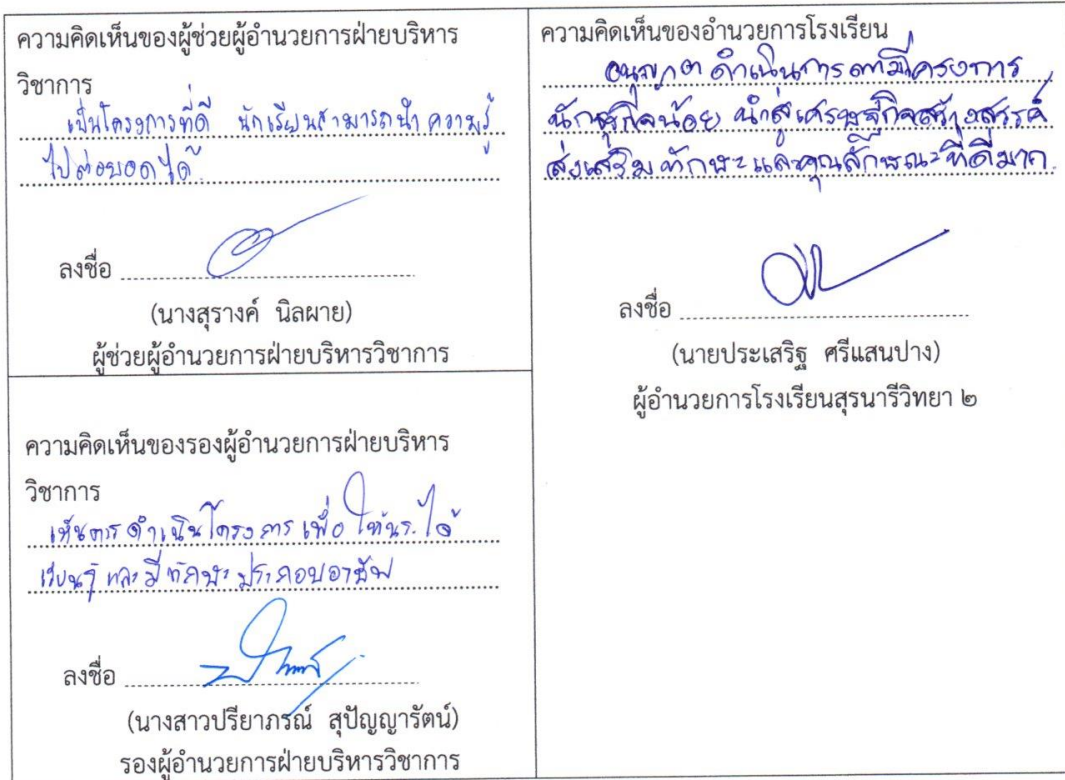 ความคิดเห็นของผู้ช่วยผู้อำนวยการฝ่ายบริหาร
วิชาการ
เป็นโครงการที่ดี นักเรียนสามารถนำความรู้
ไปต่อยอดได้
ลงชื่อ
(นางสุรางค์ นิลผาย)
ผู้ช่วยผู้อำนวยการฝ่ายบริหารวิชาการ
ความคิดเห็นของรองผู้อำนวยการฝ่ายบริหาร
วิชาการ
เห็นควรดำเนินโครงการ เพื่อให้นร.ได้
เรียนรู้ และมีทักษะประกอบอาชีพ
ลงชื่อ
(นางสาวปรียาภรณ์ สุปัญญารัตน์)
รองผู้อำนวยการฝ่ายบริหารวิชาการ
ความคิดเห็นของอำนวยการโรงเรียน
อนุญาต ดำเนินการตามโครงการ
นักธุรกิจน้อย นำสู่เศรษฐกิจสร้างสรรค์
ส่งเสริมทักษะและคุณลักษณะที่ดีมาก
ลงชื่อ
(นายประเสริฐ ศรีแสนปาง)
ผู้อำนวยการโรงเรียนสุรนารีวิทยา ๒